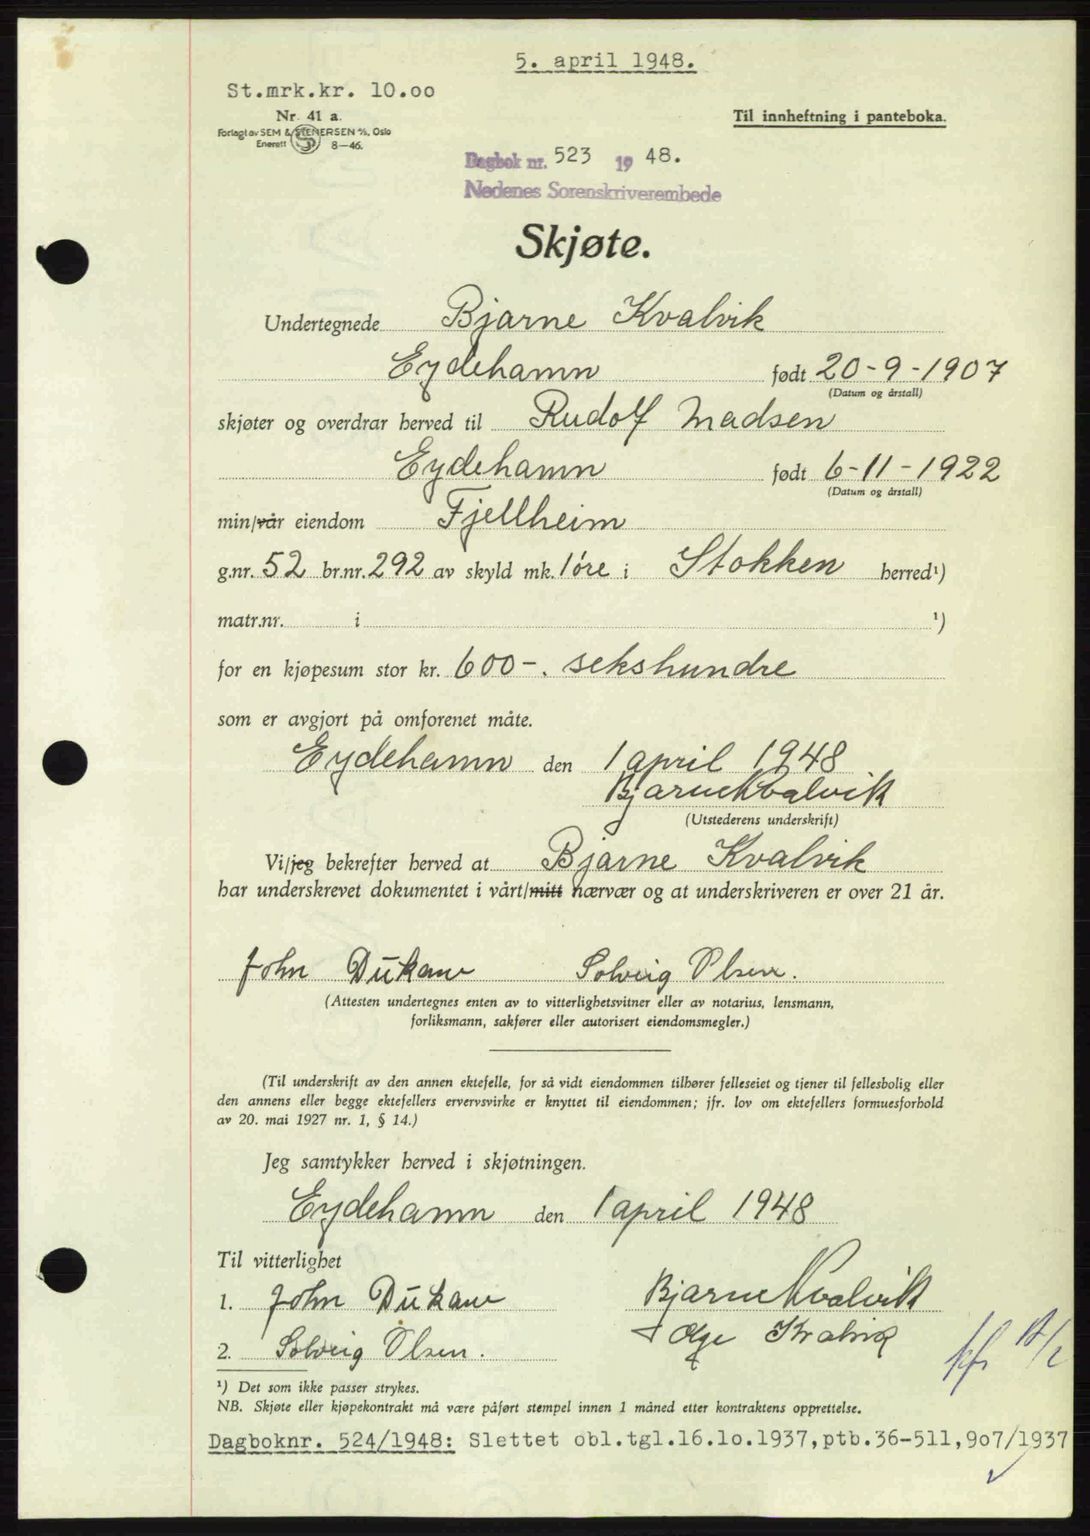 5. april 1948.
St.mrk.kr. 10.00
Nr. 41 a.
Forlagt av SEM & STENERSEN A/S, Oslo
Enerett 8—46.
Til innheftning i panteboka.
Dagbok nr. 523 1948.
Nedenes Sorenskriverembede
Skjøte.
Undertegnede Bjarne Kvalvik
Eydehamn født 20-9-1907
(Datum og årstall)
skjøter og overdrar herved til Rudolf Madsen
Eydehamn født 6-11-1922
(Datum og årstall)
min/vår eiendom Fjellheim
g.nr. 52 br.nr. 292 av skyld mk. 1 øre i Stokken herred¹)
matr.nr. i ¹)
for en kjøpesum stor kr. 600-. sekshundre
som er avgjort på omforenet måte.
Eydehamn den 1 april 1948
Bjarne Kvalvik
(Utstederens underskrift)
Vi/jeg bekrefter herved at Bjarne Kvalvik
har underskrevet dokumentet i vårt/mitt nærvær og at underskriveren er over 21 år.
John Solveig Olsen.
(Attesten undertegnes enten av to vitterlighetsvitner eller av notarius, lensmann,
forliksmann, sakfører eller autorisert eiendomsmegler.)
(Til underskrift av den annen ektefelle, for så vidt eiendommen tilhører felleseiet og tjener til fellesbolig eller
den annens eller begge ektefellers ervervsvirke er knyttet til eiendommen; jfr. lov om ektefellers formuesforhold
av 20. mai 1927 nr. 1, § 14.)
Jeg samtykker herved i skjøtningen.
Eydehamn den 1 april 1948
Til vitterlighet
1. John Bjarne Kvalvik
Kvalvik
2. Solveig Olsen.
¹) Det som ikke passer strykes.
NB. Skjøte eller kjøpekontrakt må være påført stempel innen 1 måned etter kontraktens opprettelse.
Dagboknr. 524/1948: Slettet obl.tgl.16.10.1937,ptb.36-511,907/1937